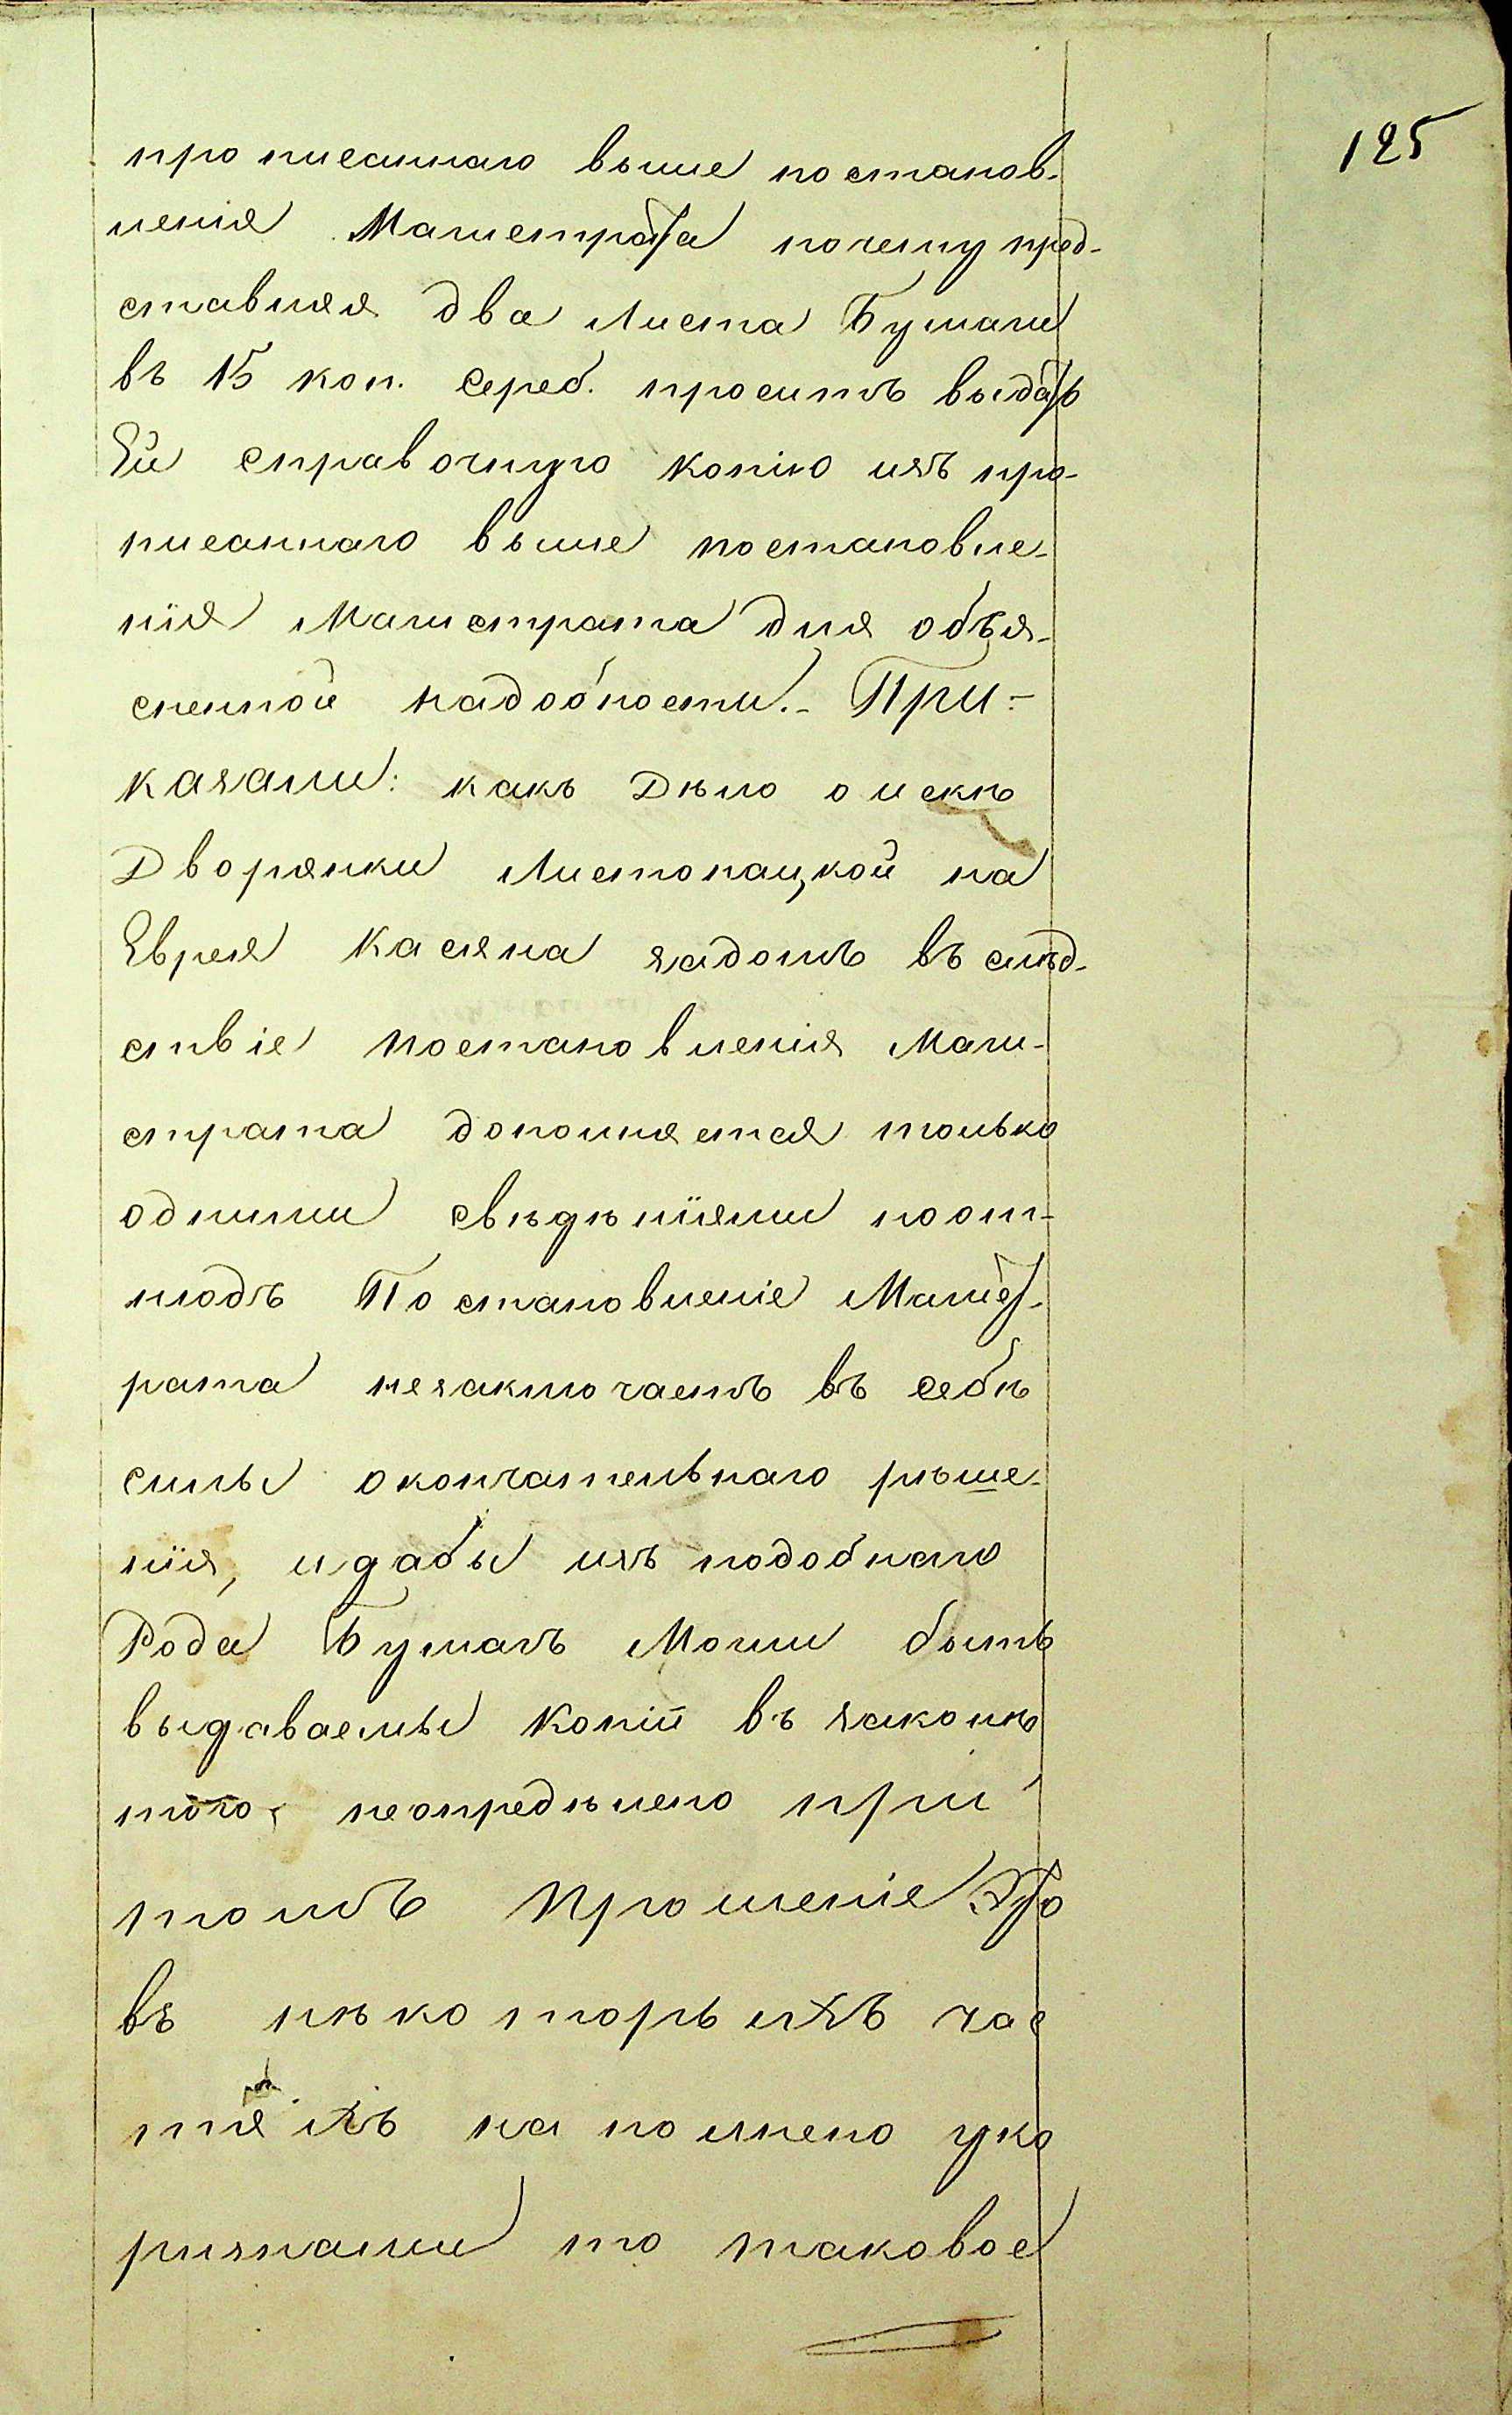 125
прописаннаго выше постанов-
ленія Магистрата почему пред-
ставляя два Листа Бумаги
въ 15 коп. Сереб. проситъ выдать
Ей справочную копію изъ про-
писаннаго выше постановле-
нія Магистрата для объя-
сненной надобности.- При-
казали: какъ Дѣло о искѣ
Дворянки Листопацкой на
Еврея Касяна задомъ въ слѣд-
ствіе постановленія Маги-
страта дополняется только
одними свѣдѣніями по от-
Постановленіе Магист-
рата незаключаетъ въ себѣ
силы окончательнаго рѣше-
нія, и дабы изъ подобнаго
Рода Бумагъ Могли быть
выдаваемы Копіи въ законѣ
того неопредѣлено при
томъ прошеніе Это
въ нѣкоторыхъ час
тяхъ наполнено уко
ризнами то таковое